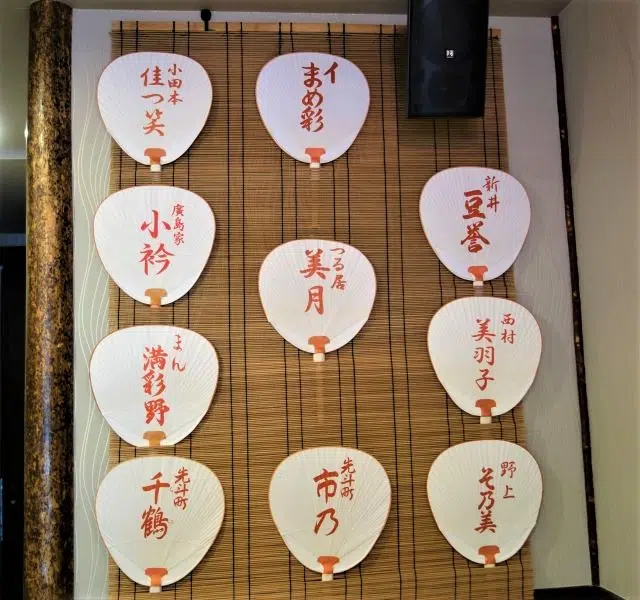 小田本
佳つ笑
イ
まめ彩
廣島家
小衿
つる居
美月
新井
豆誉
西村
美羽子
まん
満彩野
先斗町
千鶴
先斗町
市乃
野上
その美